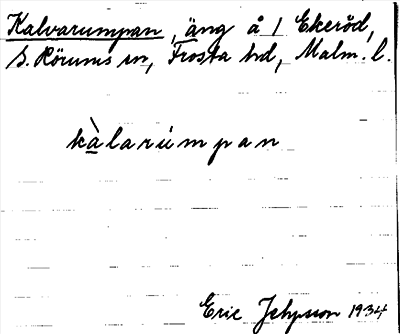 Kalvarumpan, äng å 1 Ekeröd,
S. Rörums sn, Frosta hd, Malm. l.
kàlarúmpan
Eric 1934